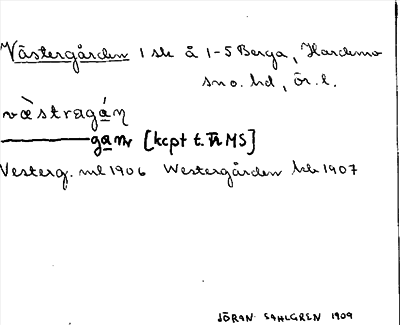 Västergården 1 sk å 1-5 Berga, Hardemo
sn o. hd, ör. l.
væ̀stragán
gan [kcpt t. n MS]
Vesterg. ml 1906 Westergården kb 1907
JÖRAN SAHLGREN 1909